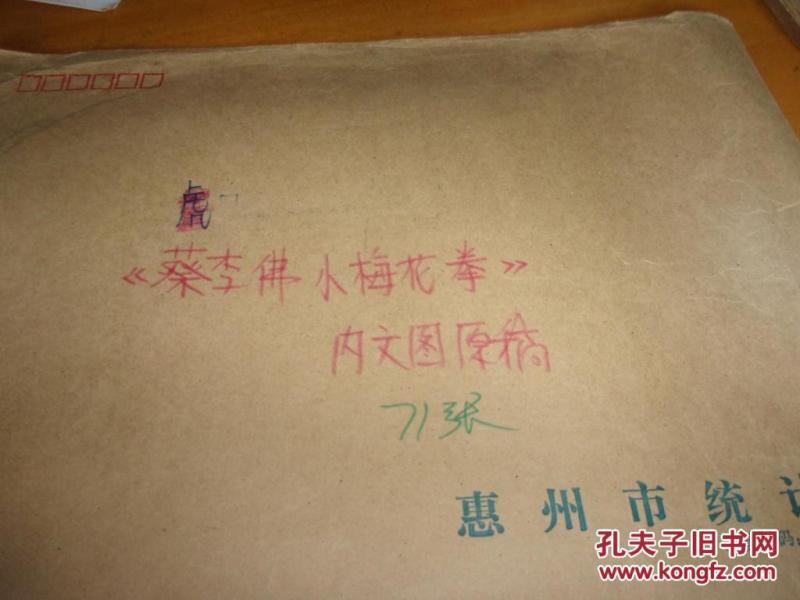 虎
《蔡李佛小梅花拳》
内文图原稿
71张
惠州市统计
码
孔夫子旧书网
www.kongfz.com